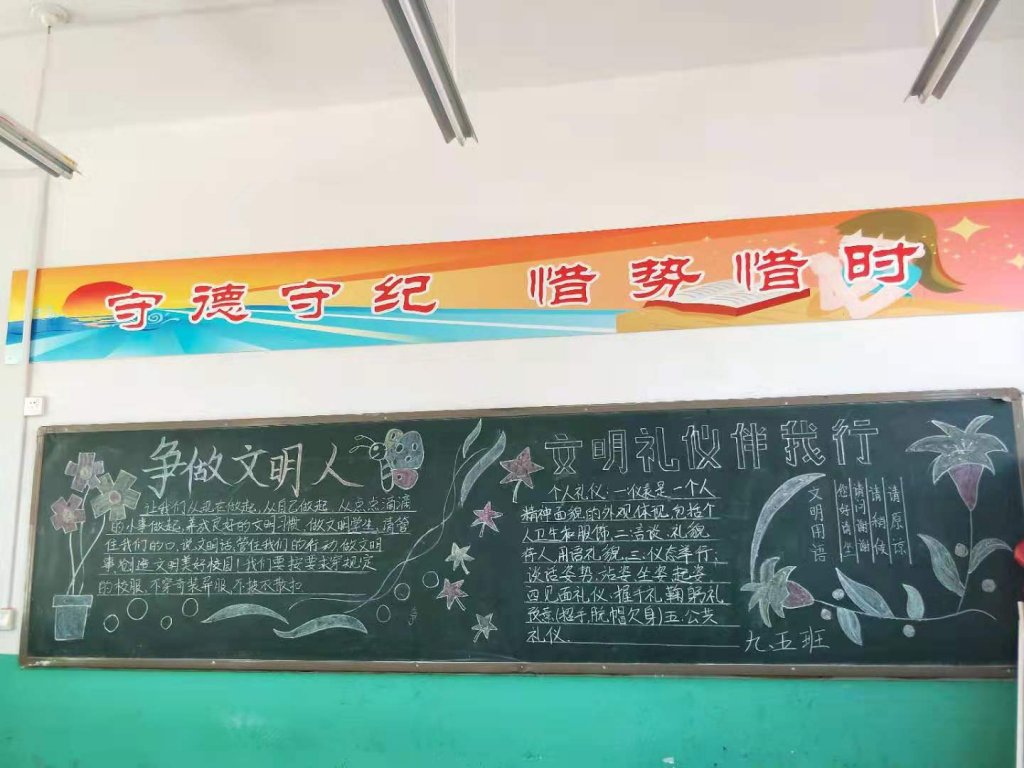 守德守纪 惜势惜时
争做文明人
让我们从现在做起,从自己做起,从点点滴滴
的小事做起,养成良好的文明习惯,做文明学生,请管
住我们的口,说文明话,管住我们的行动,做文明
事,创造文明美好校园!我们要按要求穿规定
的校服,不穿奇装异服,不披衣散扣
文明礼仪伴我行
个人礼仪:一仪表是一个人
精神面貌的外观体现,包括个
人卫生和服饰.二洁谈.礼貌
待人,用语礼貌.三.仪态举行:
谈话姿势,站姿坐姿起姿
四见面礼仪:握手礼鞠躬礼
致意(招手,脱帽欠身)五.公共
礼仪.
文明用语
您好请坐
请问谢谢
请稍候
请原谅
九.五班